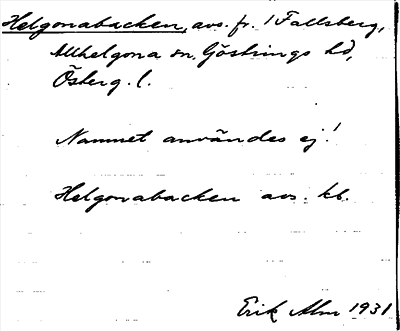 Helgonabacken, avs. fr. 1 Fallsberg,
Allhelgona sn, Göstrings hd,
Östberg. l.
Namnet användes ej!
Helgonabacken avs. kb.
Erik Alm 1931